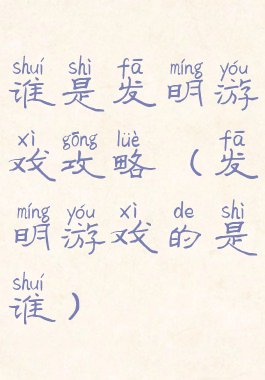 shuí shì fā míng yóu
谁是发明游
xì gōng lüè fā
戏攻略（发
míng yóu xì de shì
明游戏的是
shuí
谁）